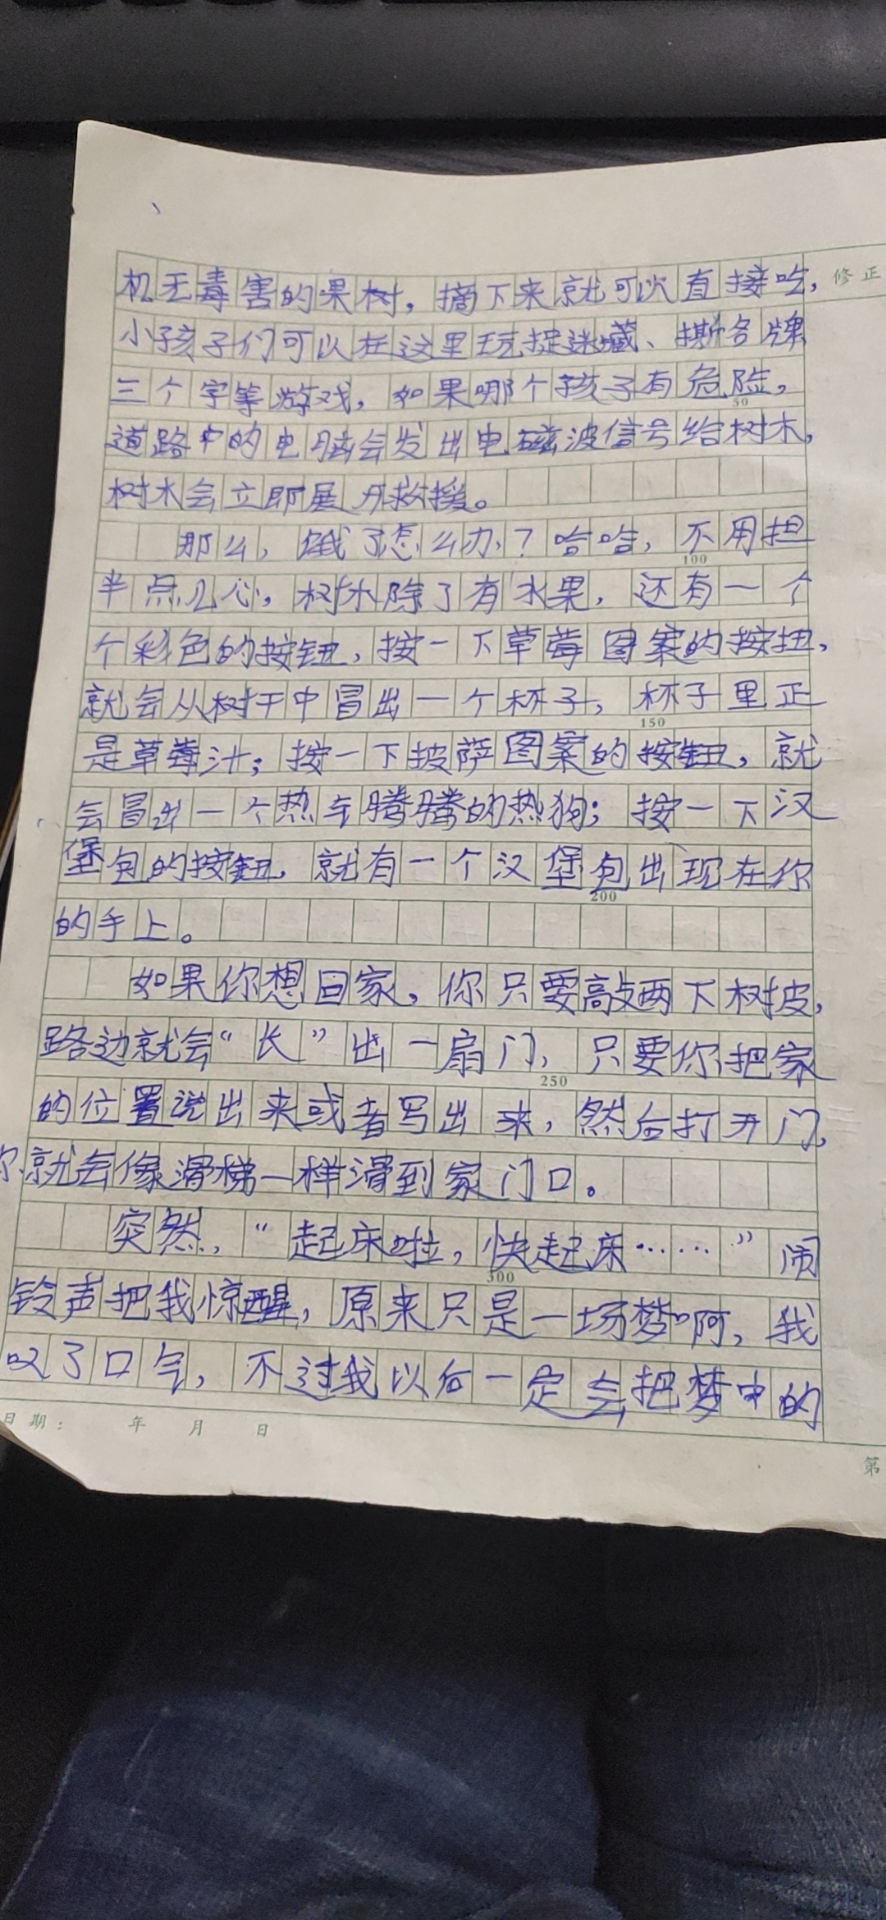 机无毒害的果树，摘下来就可以直接吃，
修正
小孩子们可以在这里玩捉迷藏、撕名牌
三个字等游戏，如果哪个孩子有危险，
50
道路中的电脑会发出电磁波信号给树木，
树木会立即展开救援。
那么，饿了怎么办？哈哈，不用担
100
半点儿心，树木除了有水果，还有一个
个彩色的按钮，按一下草莓图案的按扭，
就会从树干中冒出一个杯子，杯子里正
150
是草莓汁；按一下披萨图案的按钮，就
会冒出一个热气腾腾的热狗；按一下汉
堡包的按钮，就有一个汉堡包出现在你
200
的手上。
如果你想回家，你只要敲两下树皮，
路边就会“长”出一扇门，只要你把家
250
的位置说出来或者写出来，然后打开门，
你就会像滑梯一样滑到家门口。
突然，“起床啦，快起床……”闹
300
铃声把我惊醒，原来只是一场梦啊，我
叹了口气，不过我以后一定会把梦中的
日期： 年 月 日
第